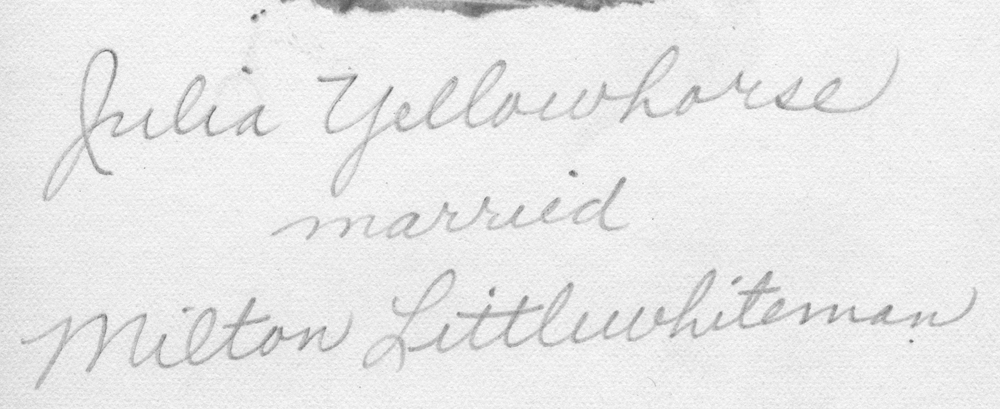 Julia Yellowhorse
married
Milton Littlewhiteman